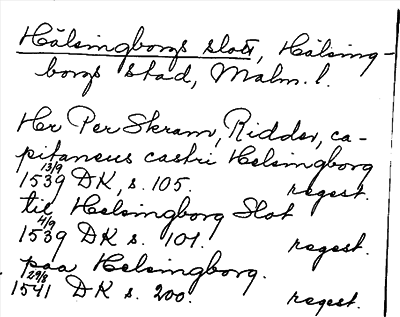 Hälsingborgs slott, Hälsing-
borgs stad, Malm. l.
Her Per Skram, Ridder, ca-
pitaneus castri Helsingborg
13/9
1539 DK, s. 105. regest.
til Helsingborg Slot
4/9
1539 DK s. 101. regest.
paa Helsingborg.
29/8
1541 DK s. 200. regest.